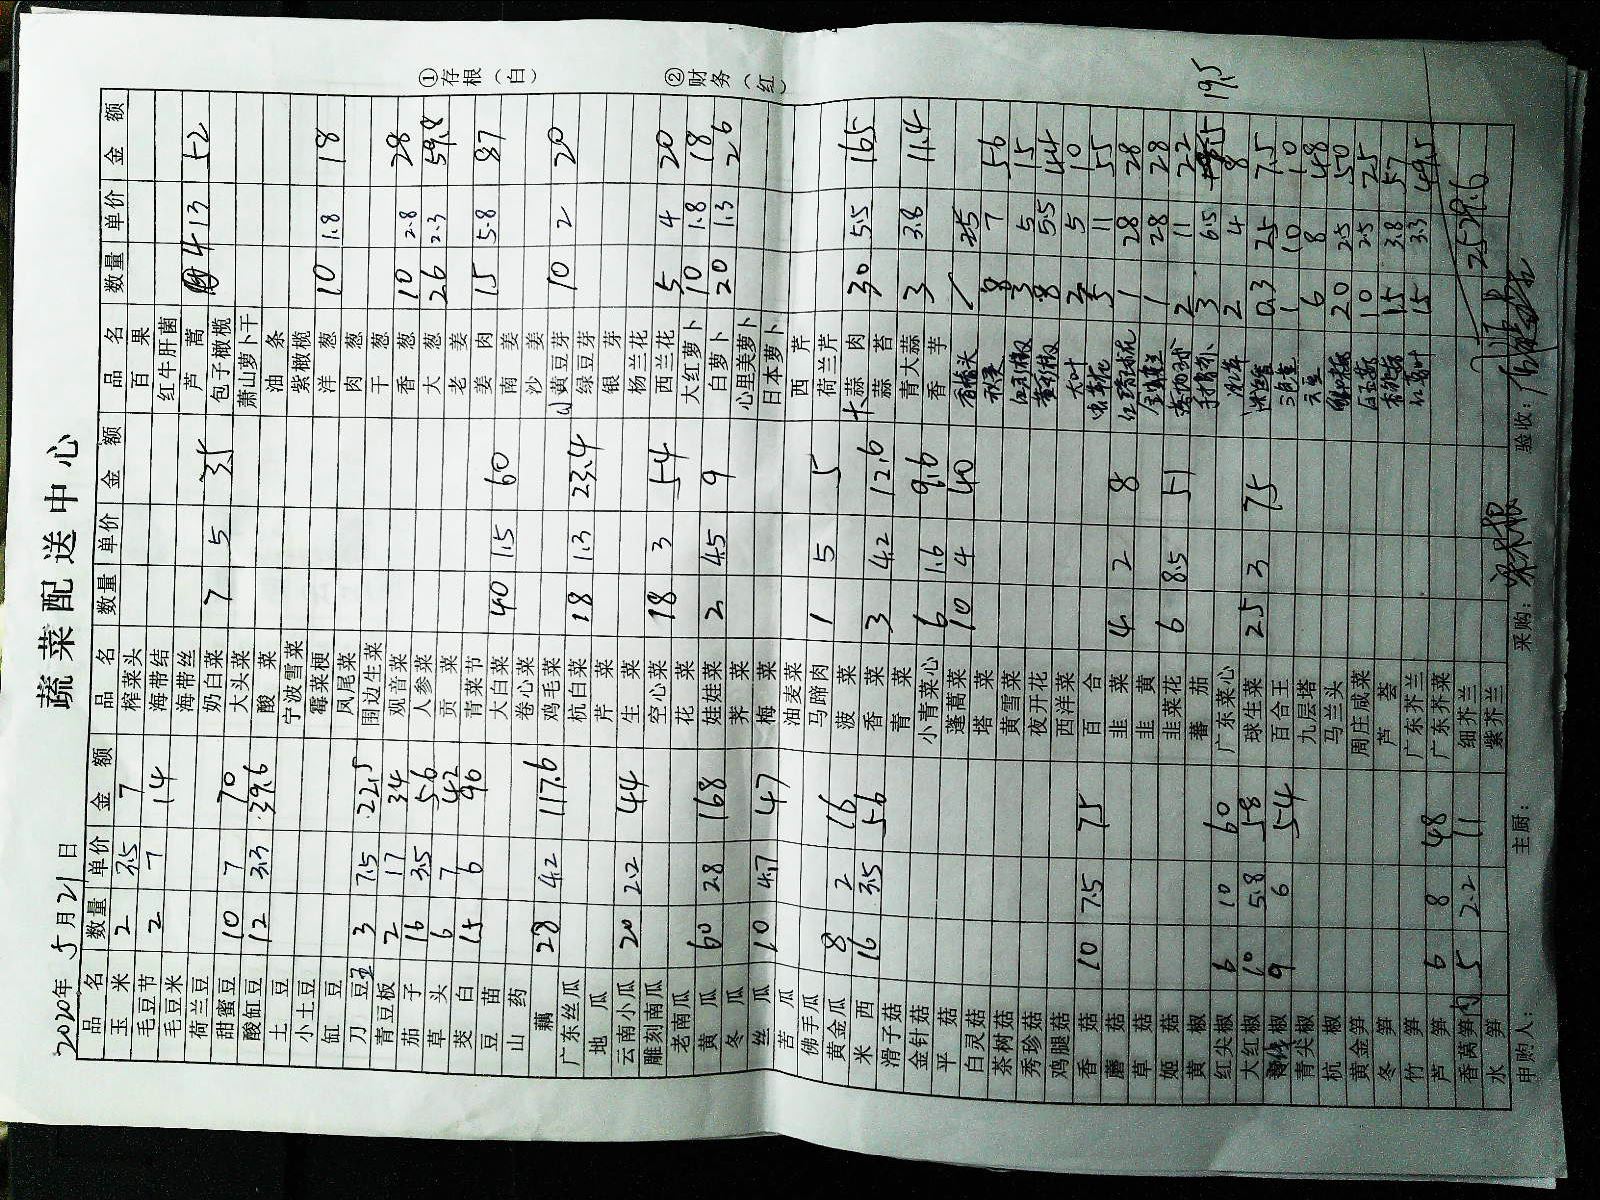 蔬菜配送中心
2020年5月21日
品名 数量 单价 金额
玉米 2 3.5 7
毛豆节 2 7 14
毛豆米
荷兰豆
甜蜜豆 10 7 70
酸缸豆 12 3.3 39.6
土豆
小土豆
缸豆
刀豆 3 7.5 22.5
青豆板 2 17 34
茄子 16 3.5 56
草头 6 7 42
茭白 15 6 90
豆苗
山药
藕 28 4.2 117.6
广东丝瓜
地瓜
云南小瓜 20 2.2 44
雕刻南瓜
老南瓜
黄瓜 60 2.8 168
冬瓜
丝瓜 10 4.7 47
苦瓜
佛手瓜
黄金瓜 8 2 16
米西 16 3.5 56
滑子菇
金针菇
平菇
白灵菇
茶树菇
秀珍菇
鸡腿菇
香菇 10 7.5 75
蘑菇
草菇
姬菇
黄椒
红尖椒 6 10 60
大红椒 10 5.8 58
椒 9 6 54
青尖椒
杭椒
黄金笋
冬笋
竹笋
芦笋 6 8 48
香莴笋肉 5 2.2 11
水笋
品名 数量 单价 金额
榨菜头
海带结
海带丝
奶白菜 7 5 35
大头菜
酸菜
宁波雪菜
霉菜梗
凤尾菜
围边生菜
观音菜
人参菜
贡菜
青菜节
大白菜 40 1.5 60
卷心菜
鸡毛菜
杭白菜 18 1.3 23.4
芹菜
生菜
空心菜 18 3 54
花菜
娃娃菜 2 4.5 9
荠菜
梅菜
油麦菜
马蹄肉 1 5 5
菠菜
香菜 3 4.2 12.6
青菜
小青菜心 6 1.6 9.6
蓬蒿菜 10 4 40
塔菜
黄雪菜
夜开花
西洋菜
百合
韭菜 4 2 8
韭黄
韭菜花 6 8.5 51
蕃茄
广东菜心
球生菜 25 3 75
百合王
九层塔
马兰头
周庄咸菜
芦荟
广东芥兰
广东芥菜
细芥兰
紫芥兰
品名 数量 单价 金额
百果
红牛肝菌
芦蒿 4 13 52
包子橄榄
萧山萝卜干
油条
紫橄榄
洋葱 10 1.8 18
肉葱
干葱
香葱 10 2.8 28
大葱 26 2.3 59.8
老姜
姜肉 15 5.8 87
南姜
沙姜
黄豆芽 10 2 20
绿豆芽
银芽
杨兰花
西兰花 5 4 20
大红萝卜 10 1.8 18
白萝卜 20 1.3 26
心里美萝卜
日本萝卜
西芹
荷兰芹
大蒜肉 30 5.5 165
蒜苔
青大蒜 3 3.8 11.4
香芋
8 7 56
3 5 15
8 5.5 44
大叶 2 5 10
5 11 55
1 28 28
1 28 28
2 11 22
3 6.5 19.5
2 4 8
0.3 25 7.5
三色堇 1 10 10
6 8 48
20 2.5 50
10 2.5 25
15 3.8 57
15 3.3 49.5
2529.6
①存根(白)
②财务(红)
申购人: 主厨: 采购: 验收: